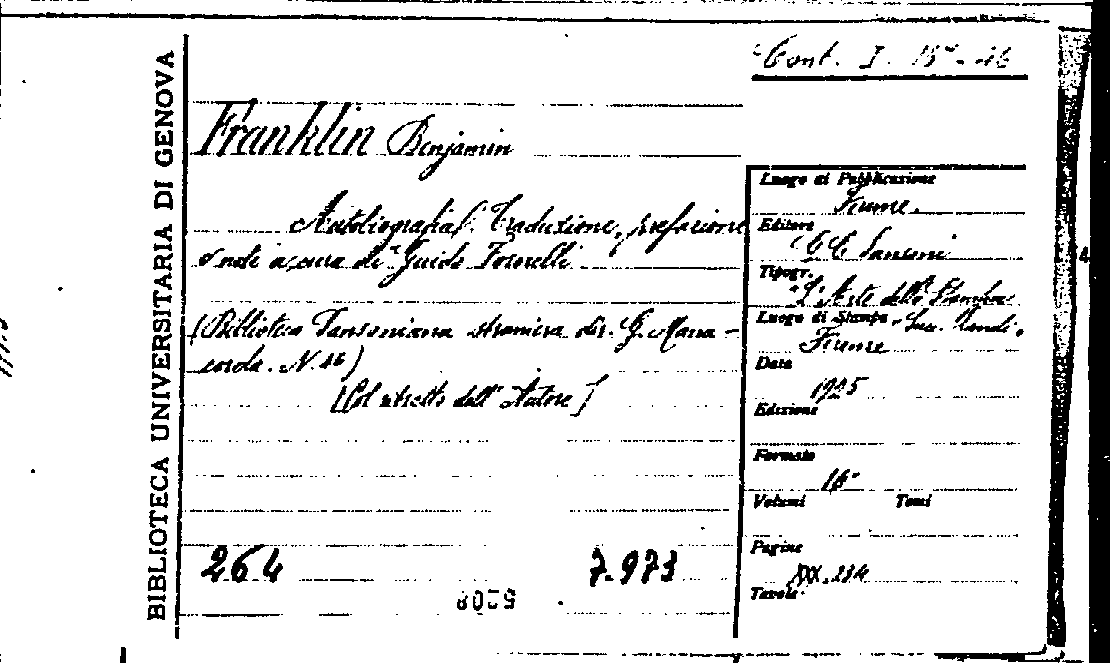 BIBLIOTECA UNIVERSITARIA DI GENOVA
Cont. I. 15 - 46
Franklin Benjamin
Autobiografia. Traduzione, prefazione
e note a cura di Guido Fornelli
(Biblioteca Sansoniana straniera dir. G. Mana-
corda. N. 46)
[Col ritratto dell'Autore]
264
7.973
Luogo di Pubblicazione
Firenze.
Editore
G. C. Sansoni
Tipogr.
"L'Arte della Stampa"
Luogo di Stampa Succ. Landi.
Firenze
Data
1925
Edizione
Formato
16°
Volumi Tomi
Pagine
XXX. 234
Tavole